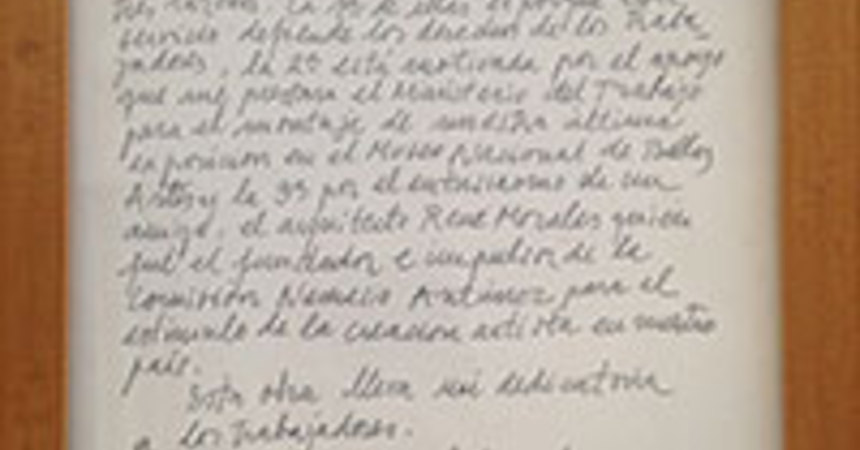 tres razones. La 1ª de ellas es porque este
servicio defiende los derechos de los Traba
jadores, la 2ª está motivada por el apoyo
que me prestara el Ministerio del Trabajo
para el montaje de nuestra última
exposición en el Museo Nacional de Bellas
Artes y la 3ª por el entusiasmo de un
amigo, el arquitecto Rene Morales quien
fué el fundador e impulsor de la
Comisión Nemesio Antúnez para el
estimulo de la creación artista en nuestro
país.
Esta obra lleva mi dedicatoria
a los Trabajadores.